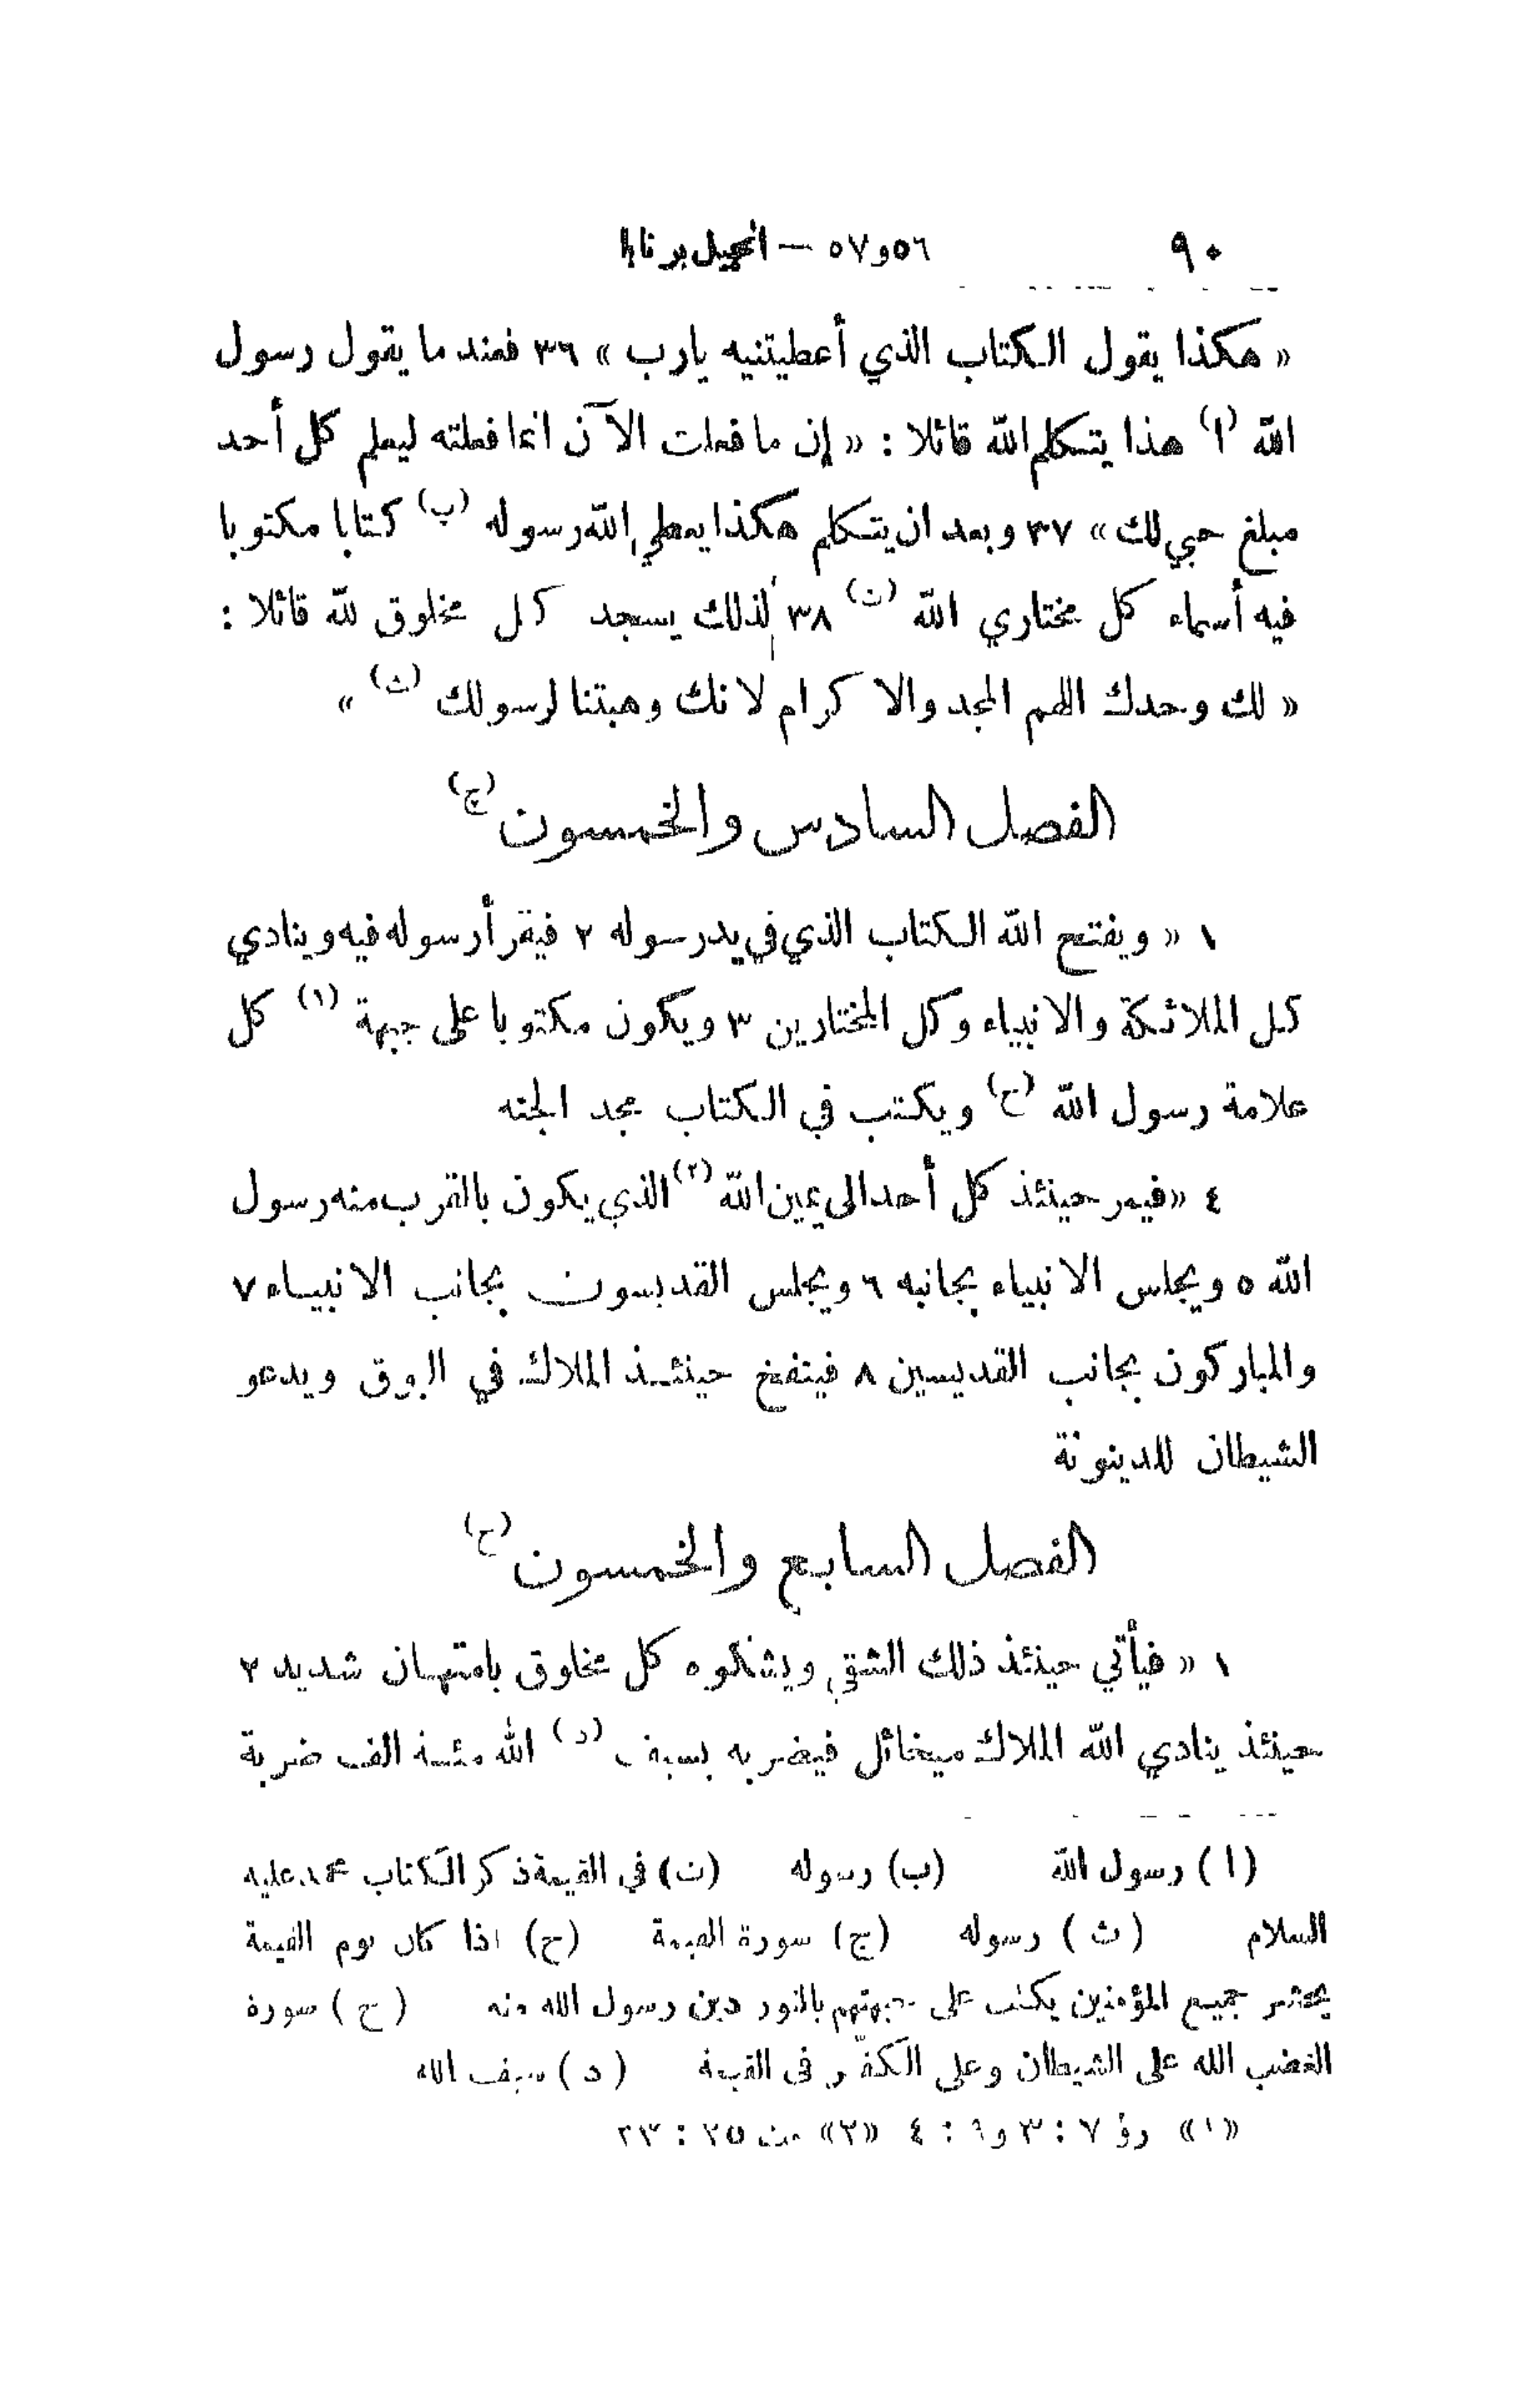 ٩٠ ٥٦و٥٧ — انجيل برنابا
« هكذا يقول الكتاب الذي أعطيتنيه يارب » ٣٦ فعند ما يقول رسول
الله (ا) هذا يتكلم الله قائلا : « إن ما فعلت الآن انما فعلته ليعلم كل أحد
مبلغ حبي لك » ٣٧ وبعد ان يتكلم هكذا يعطي الله رسوله (ب) كتابا مكتوبا
فيه أسماء كل مختاري الله (ت) ٣٨ لذلك يسجد كل مخلوق لله قائلا :
« لك وحدك اللهم المجد والاكرام لانك وهبتنا لرسولك (ث) »
الفصل السادس والخمسون (ج)
١ « ويفتح الله الكتاب الذي في يد رسوله ٢ فيقرأ رسوله فيه وينادي
كل الملائكة والانبياء وكل المختارين ٣ ويكون مكتوبا على جبهة (١) كل
علامة رسول الله (ح) ويكتب في الكتاب مجد الجنه
٤ «فيمر حينئذ كل أحد الى يمين الله (٢) الذي يكون بالقرب منه رسول
الله ٥ ويجلس الانبياء بجانبه ٦ ويجلس القديسون بجانب الانبياء ٧
والمباركون بجانب القديسين ٨ فينفخ حينئذ الملاك في البوق ويدعو
الشيطان للدينونة
الفصل السابع والخمسون (خ)
١ « فيأتي حينئذ ذلك الشقي ويشكوه كل مخلوق بامتهان شديد ٢
حينئذ ينادي الله الملاك ميخائل فيضربه بسيف (د) الله مئة الف ضربة
(ا) رسول الله (ب) رسوله (ت) في القيمة ذكر الكتاب محمد عليه
السلام (ث) رسوله (ج) سورة القيمة (ح) اذا كان يوم القيمة
يحشر جميع المؤمنين يكتب على جبهتهم بالنور دين رسول الله منه (خ) سورة
الغضب الله على الشيطان وعلى الكفّر في القيمة (د) سيف الله
«١» رؤ ٧ : ٣ و٩ : ٤ «٢» مت ٢٥ : ٢٣